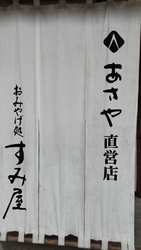 あさや
直営店
おみやげ処
すみ屋